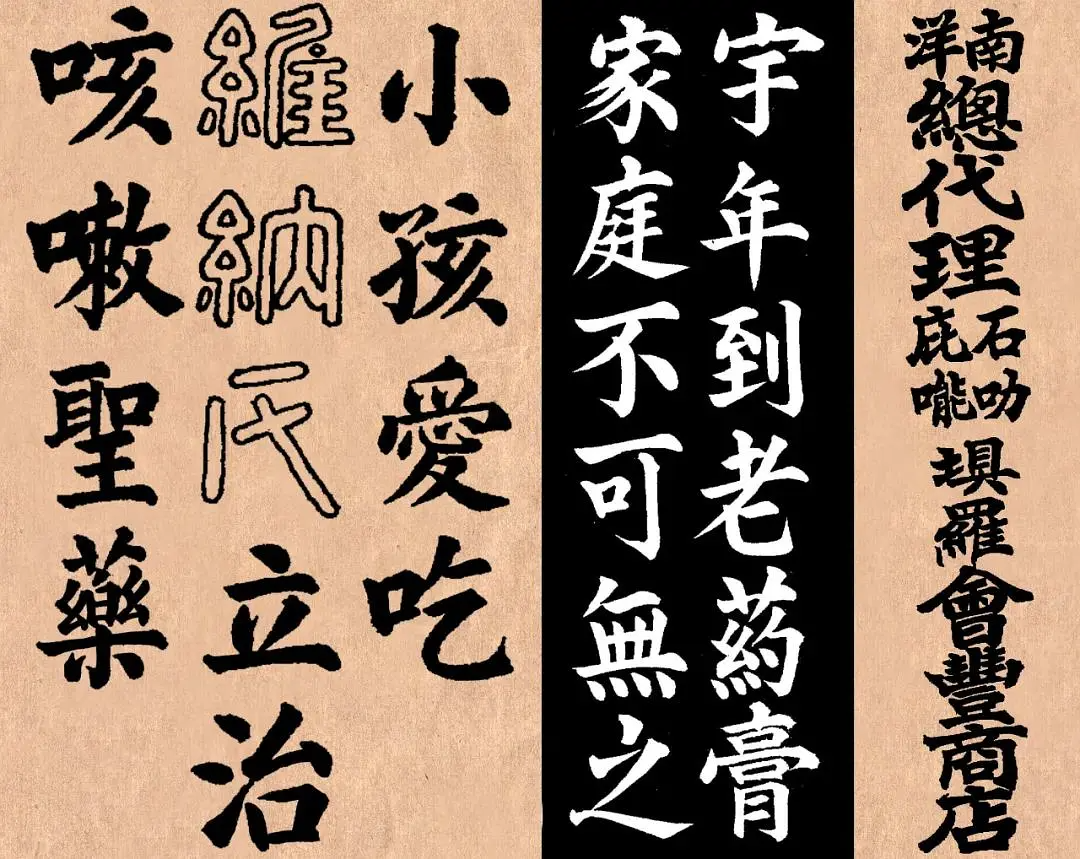 南洋總代理石叻庇㘄埧羅會豐商店
宇年到老葯膏
家庭不可無之
小孩愛吃
維納氏立治
咳嗽聖藥